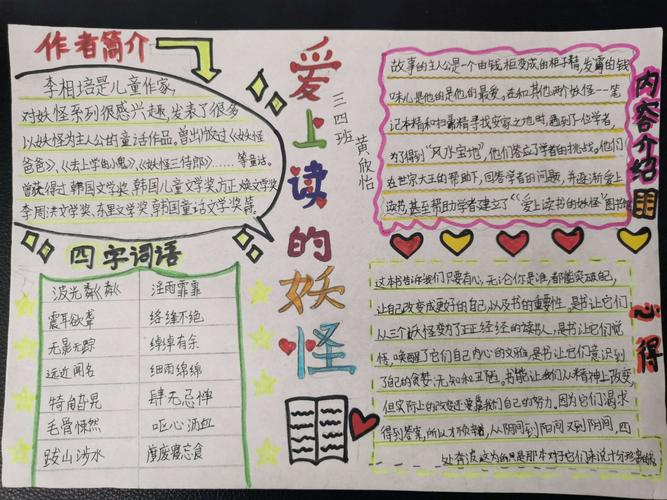 作者简介
李相培是儿童作家,
对妖怪系列很感兴趣,发表了很多
以妖怪为主人公的童话作品。曾出版过《妖怪
爸爸》,《去上学的小鬼》,《妖怪三侍郎》……等童话。
曾获得过韩国文学奖,韩国儿童文学奖,方正焕文学奖
李周洪文学奖,东里文学奖,韩国童话文学奖等。
四字词语
波光粼粼 淫雨霏霏
震耳欲聋 络绎不绝
无影无踪 绰绰有余
远近闻名 细雨绵绵
犄角旮旯 肆无忌惮
毛骨悚然 呕心沥血
跋山涉水 废寝忘食
爱上读的妖怪
三四班
黄欣怡
内容介绍
故事的主人公是一个由钱柜变成的柜子精,发霉的钱
味儿是他的最爱。在和其他两个妖怪—笔
记本精和扫帚精寻找安家之地时,遇到了一位学者,
为了得到“风水宝地”,他们答应了学者的挑战。他们
在世宗大王的帮助下,回答学者的问题,并逐渐爱上
读书,甚至帮助学者建立了“爱上读书的妖怪”图书
心得
这本书告诉我们只要有心,无论你是谁,都能突破自己,
让自己改变成更好的自己,以及书的重要性。是书让它们
从三个妖怪变为了正正经经的读书人,是书让它们觉
悟,唤醒了它们自己内心的文雅,是书让它们意识到
了自己的贪婪、无知和丑陋。书能让我们从精神上改变,
但实际上的改变还要靠我们自己的努力。因为它们渴求
得到答案,所以才不顾辛劳,从阴间到阳间又到阴间,四
处奔波,这为的只是那本对于它们来说十分珍